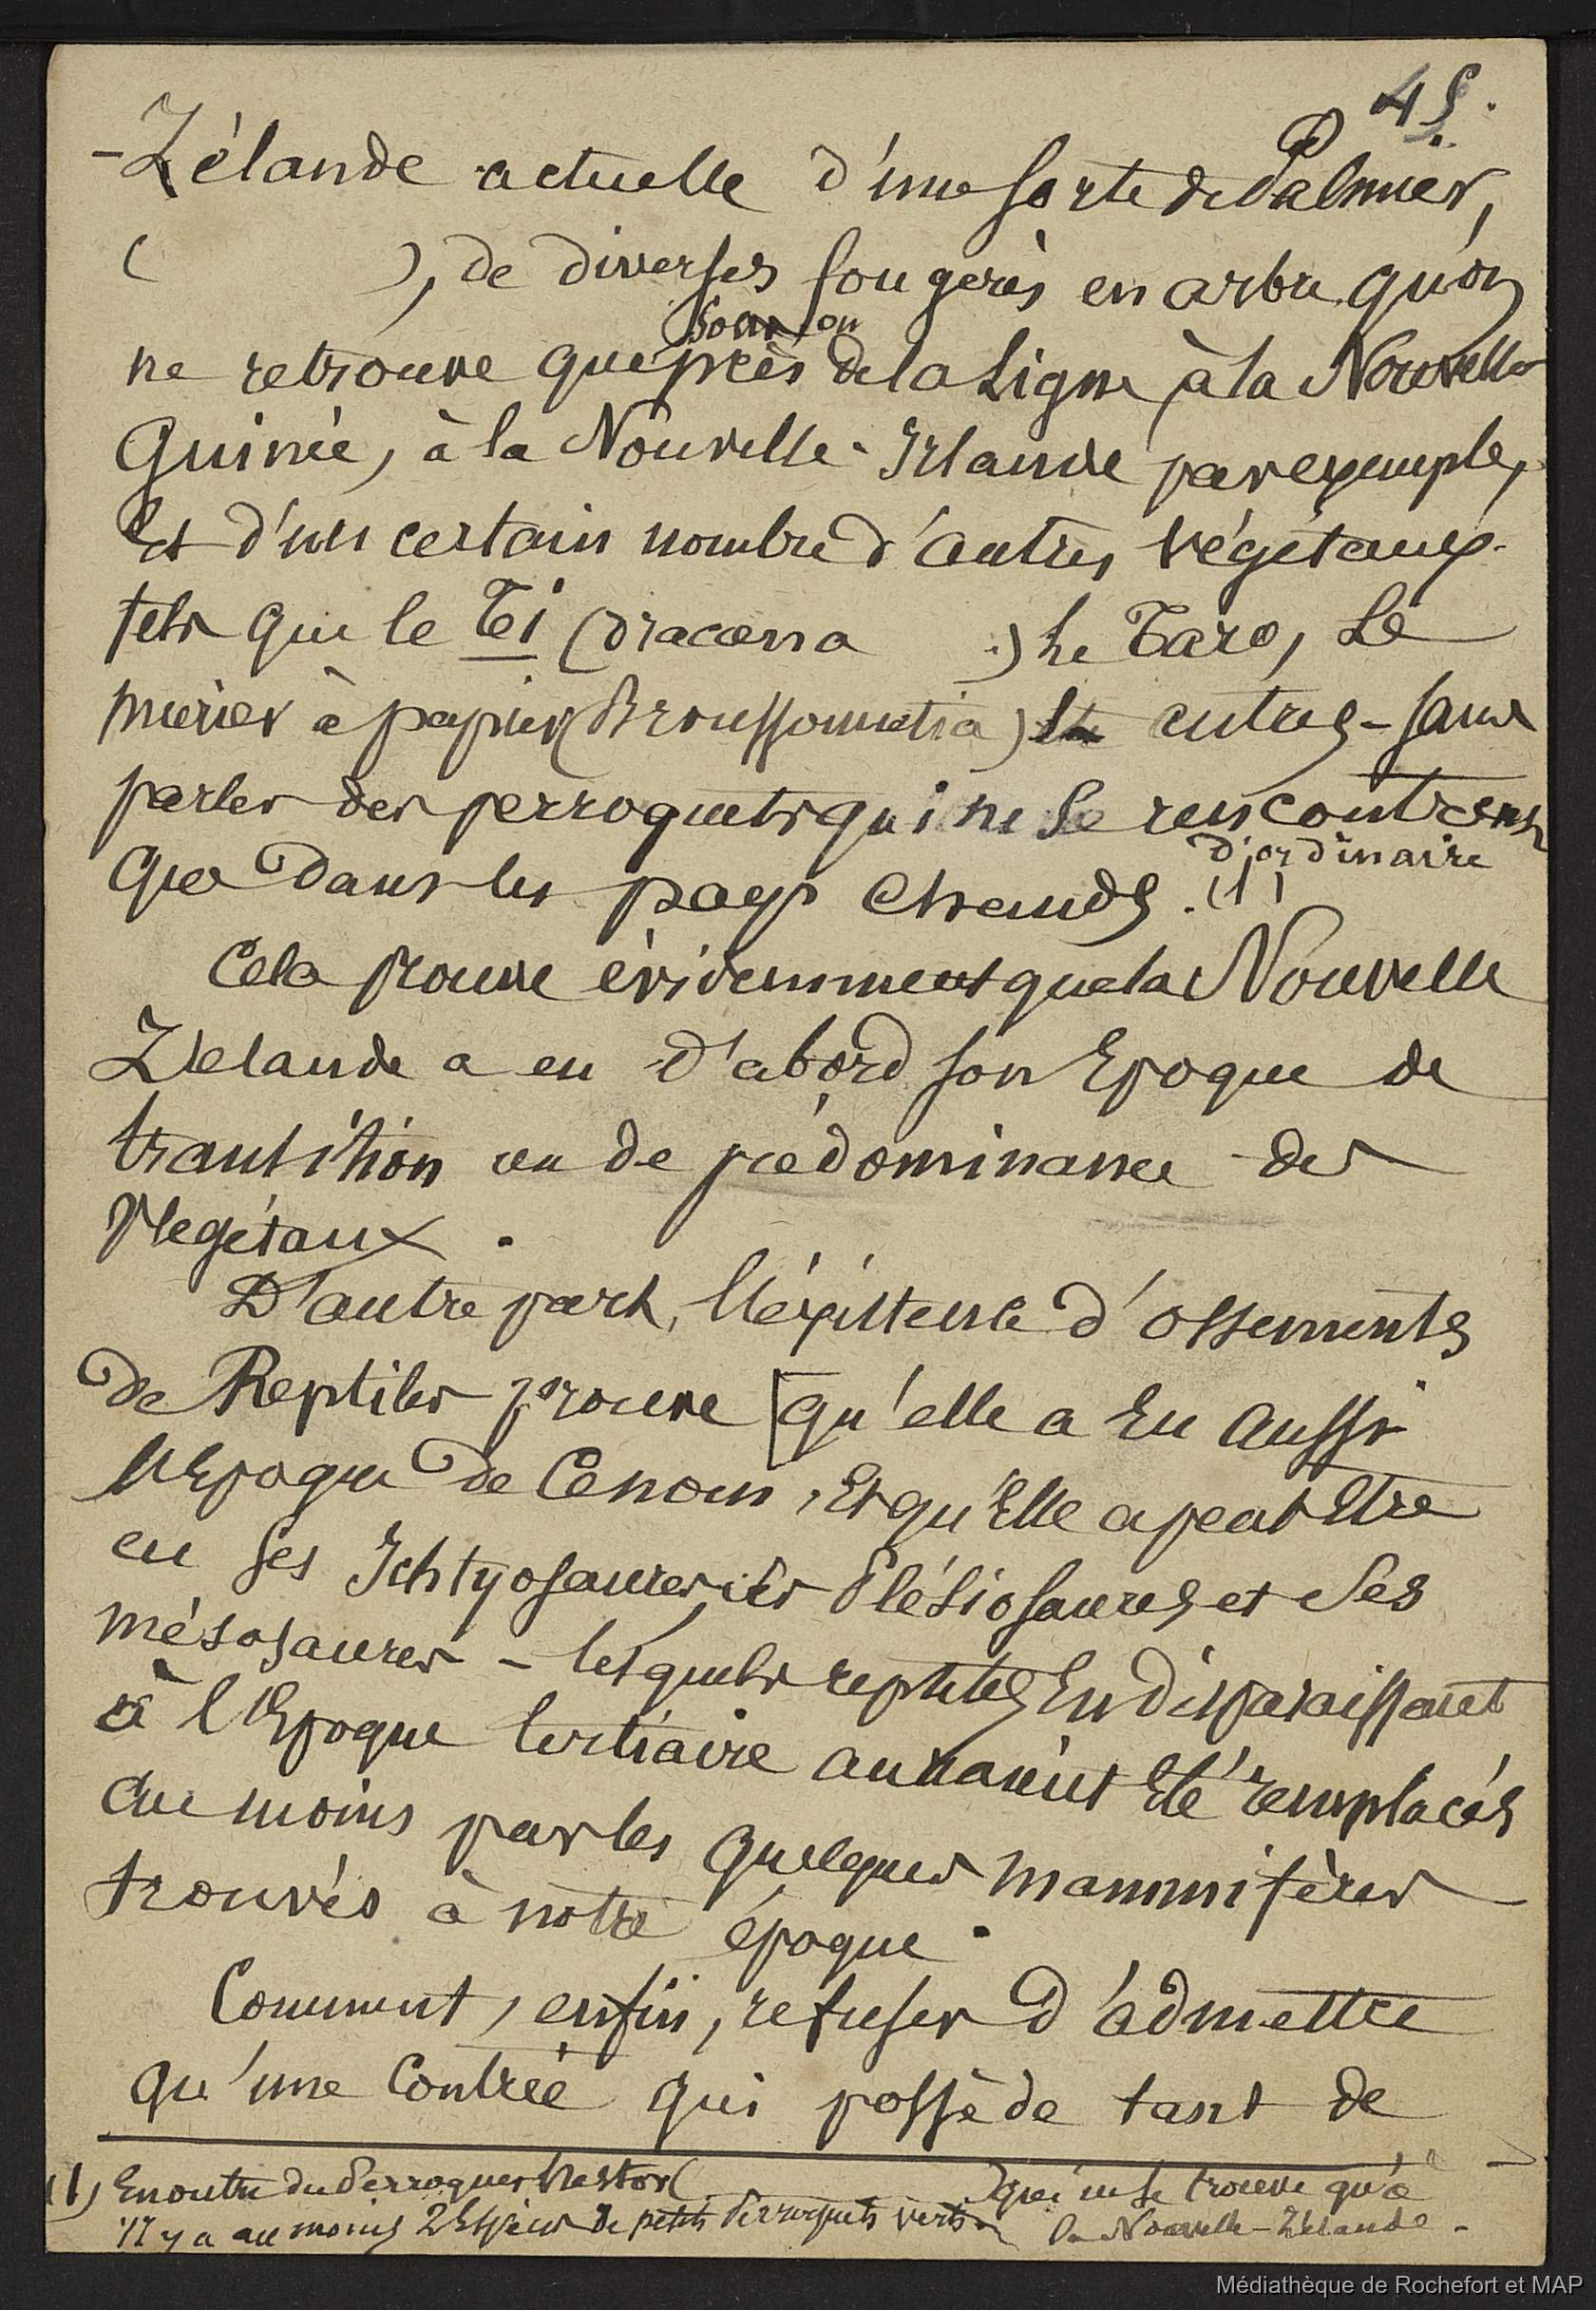 45.
-Zélande actuelle d'une sorte de Palmier,
( ), de diverses fougères en arbre qu'on
sous ou
ne retrouve que près de la Ligne à la Nouvelle
Guinée, à la Nouvelle-Irlande par exemple,
Et d'un certain nombre d'autres végétaux
tels que le Ti (dracoena .) le Taro, Le
murier à papier (Broussonnetia) et autres - sans
parler des perroquets qui ne se rencontrent
d'ordinaire
que dans les pays chauds. (1)
Cela prouve évidemment que la Nouvelle
Zélande a eu d'abord son Epoque de
transition ou de prédominance des
Végétaux.
D'autre part, l'éxistence d'ossements
de Reptiles prouve [qu'elle a Eu aussi
l'Epoque de et qu'Elle a peut Etre
eu ses Ichtyosaures, ses Plésiosaures et ses
mésosaures - lesquels reptiles En disparaissant
à l'Epoque tertiaire auraient Eté remplacés
au moins par les quelques mammifères
trouvés à notre époque.
Comment, enfin, refuser d'admettre
qu'une Contrée qui possède tant de
(1) En outre du Perroquet Nestor ( ) qui ne se trouve qu'à
la Nouvelle-Zélande.
Il y a au moins 2 Espèces de petits Perroquets verts.
Médiathèque de Rochefort et MAP